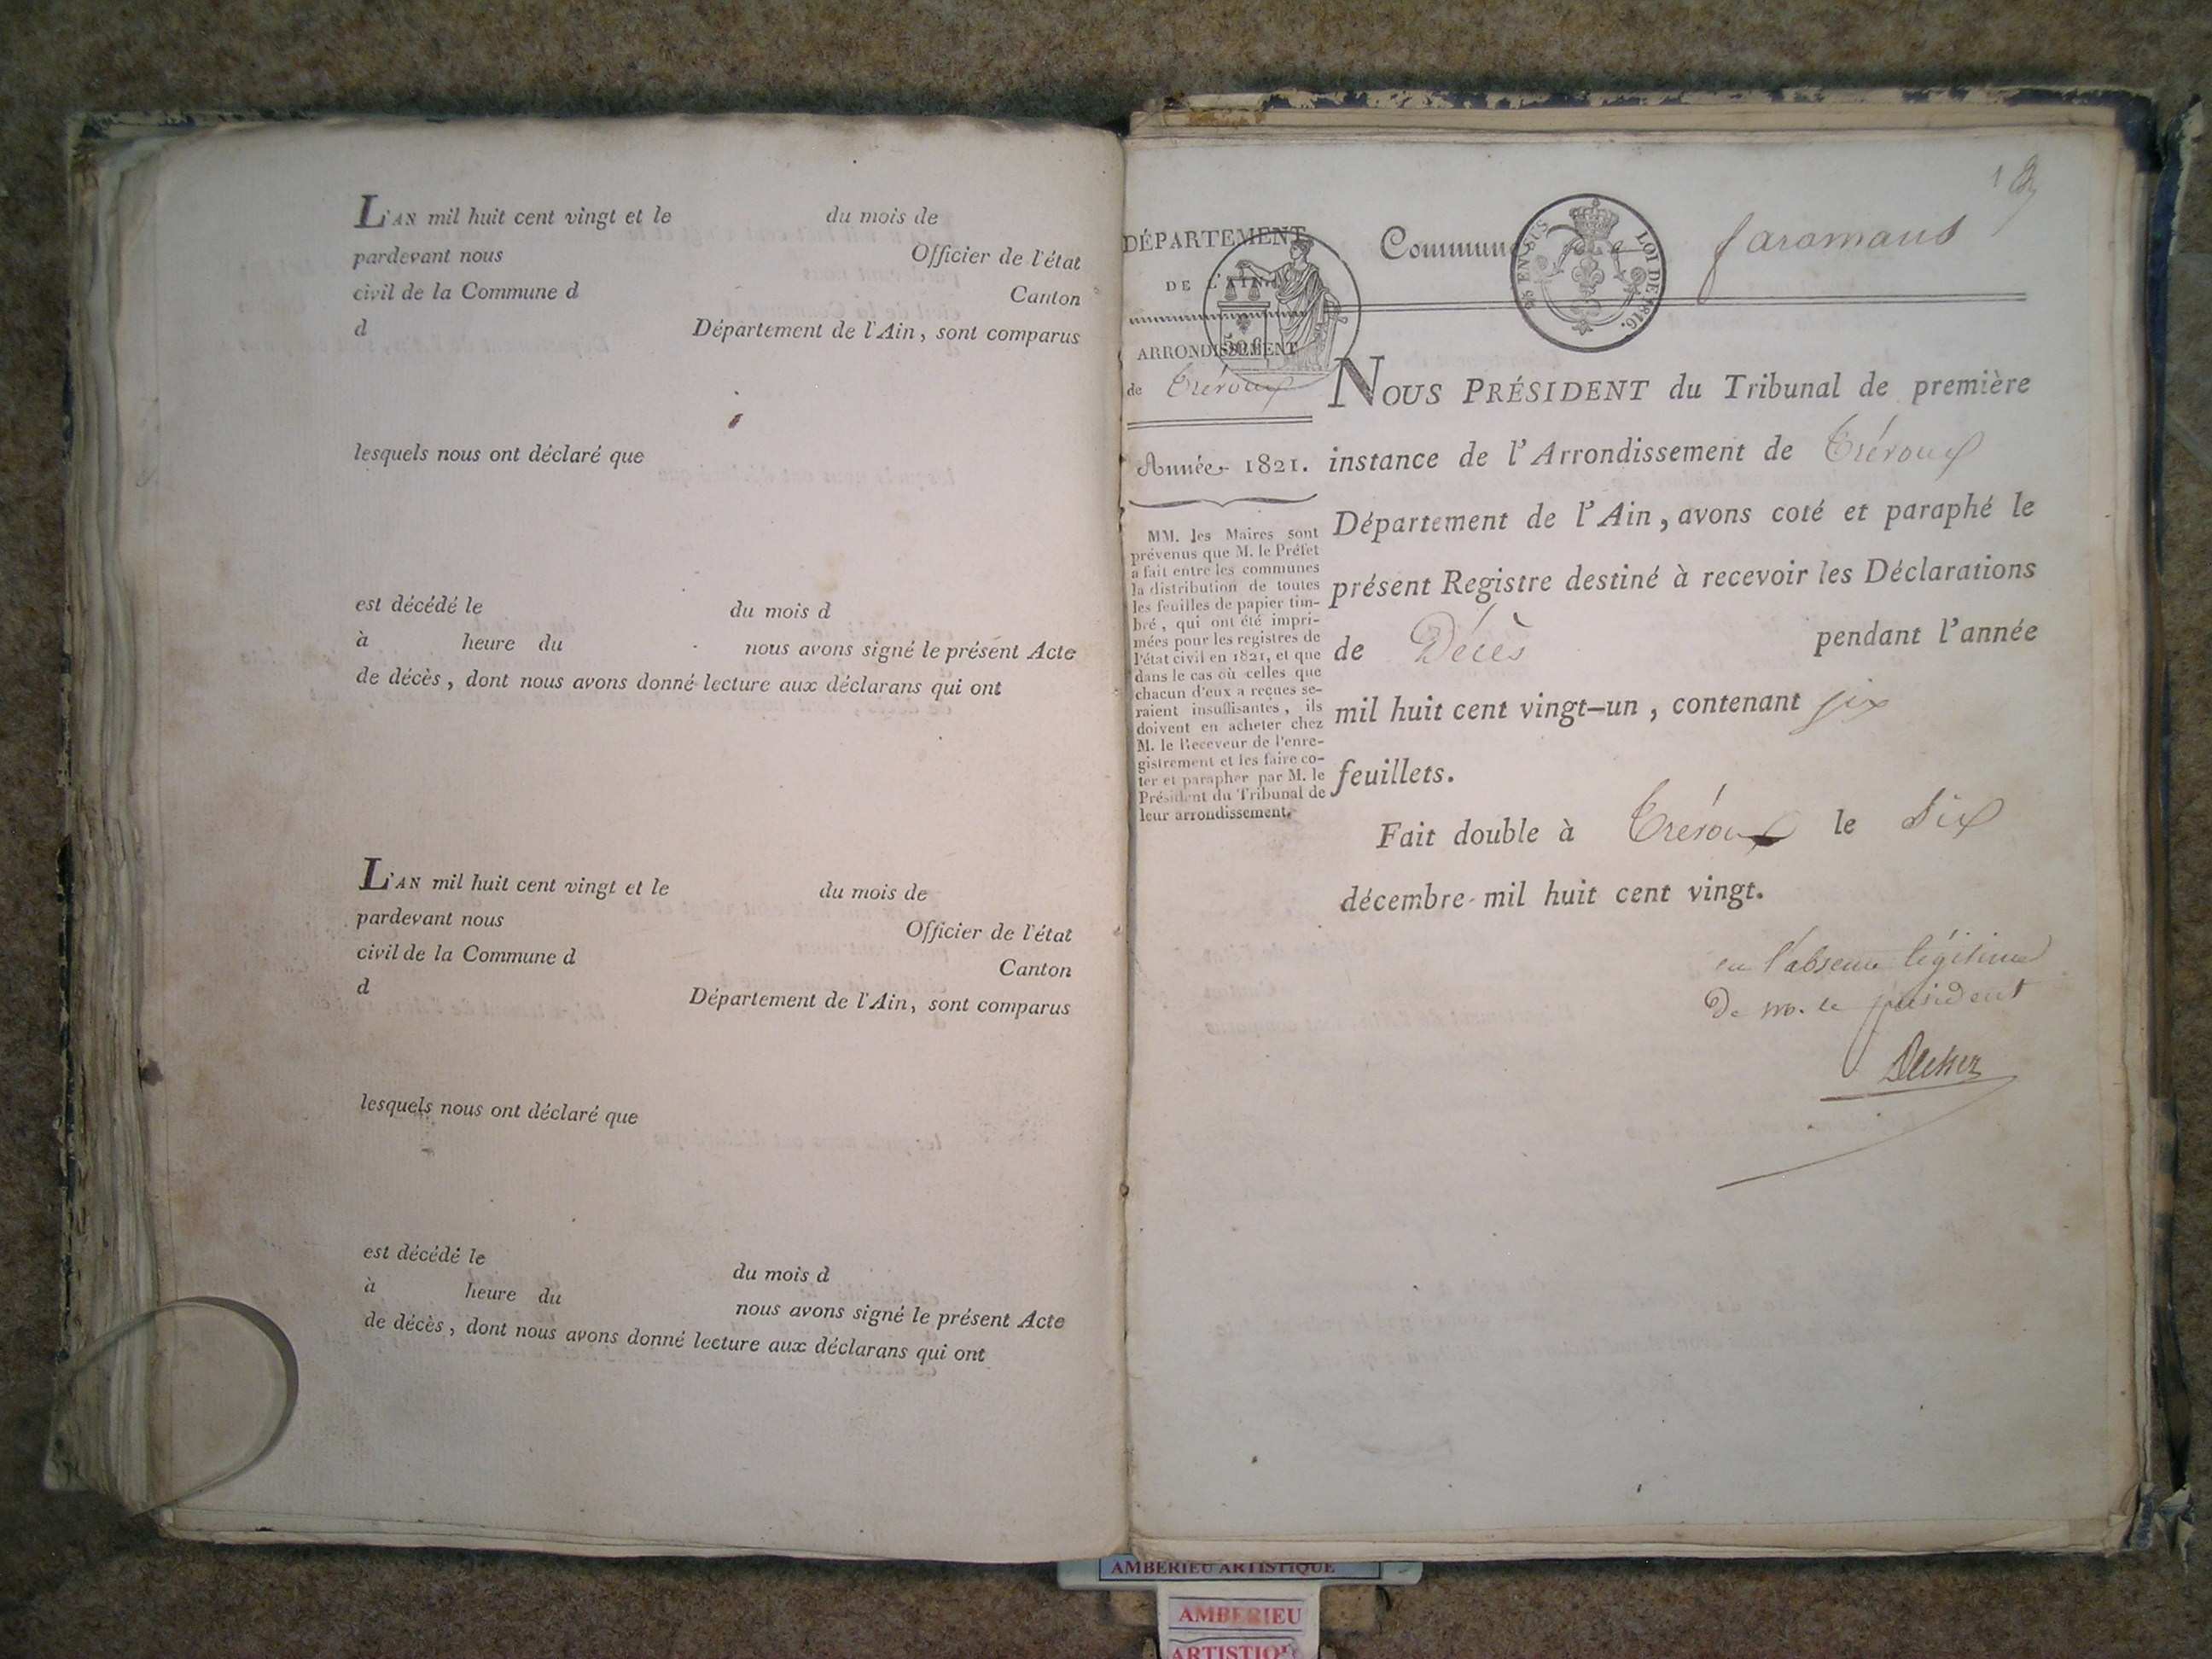 L'AN mil huit cent vingt et le du mois de
pardevant nous Officier de l'état
civil de la Commune d Canton
d Département de l'Ain, sont comparus
lesquels nous ont déclaré que
est décédé le du mois d
à heure du nous avons signé le présent Acte
de décès, dont nous avons donné lecture aux déclarans qui ont
L'AN mil huit cent vingt et le du mois de
pardevant nous Officier de l'état
civil de la Commune d Canton
d Département de l'Ain, sont comparus
lesquels nous ont déclaré que
est décédé le du mois d
à heure du nous avons signé le présent Acte
de décès, dont nous avons donné lecture aux déclarans qui ont
DÉPARTEMENT
DE L'AIN
ARRONDISSEMENT
de Trévoux
Année 1821.
MM. les Maires sont
prévenus que M. le Préfet
a fait entre les communes
la distribution de toutes
les feuilles de papier tim-
bré, qui ont été impri-
mées pour les registres de
l'état civil en 1821, et que
dans le cas où celles que
chacun d'eux a reçues se-
raient insuffisantes, ils
doivent en acheter chez
M. le Receveur de l'enre-
gistrement et les faire co-
ter et parapher par M. le
Président du Tribunal de
leur arrondissement.
50 c
EN SUS
LOI DE 1816.
Commune de faramans
NOUS PRÉSIDENT du Tribunal de première
instance de l'Arrondissement de Trévoux
Département de l'Ain, avons coté et paraphé le
présent Registre destiné à recevoir les Déclarations
de Décès pendant l'année
mil huit cent vingt-un, contenant six
feuillets.
Fait double à Trévoux le Six
décembre mil huit cent vingt.
en l'absence légitime
De m. le président
AMBERIEU ARTISTIQUE
AMBERIEU
ARTISTIQ